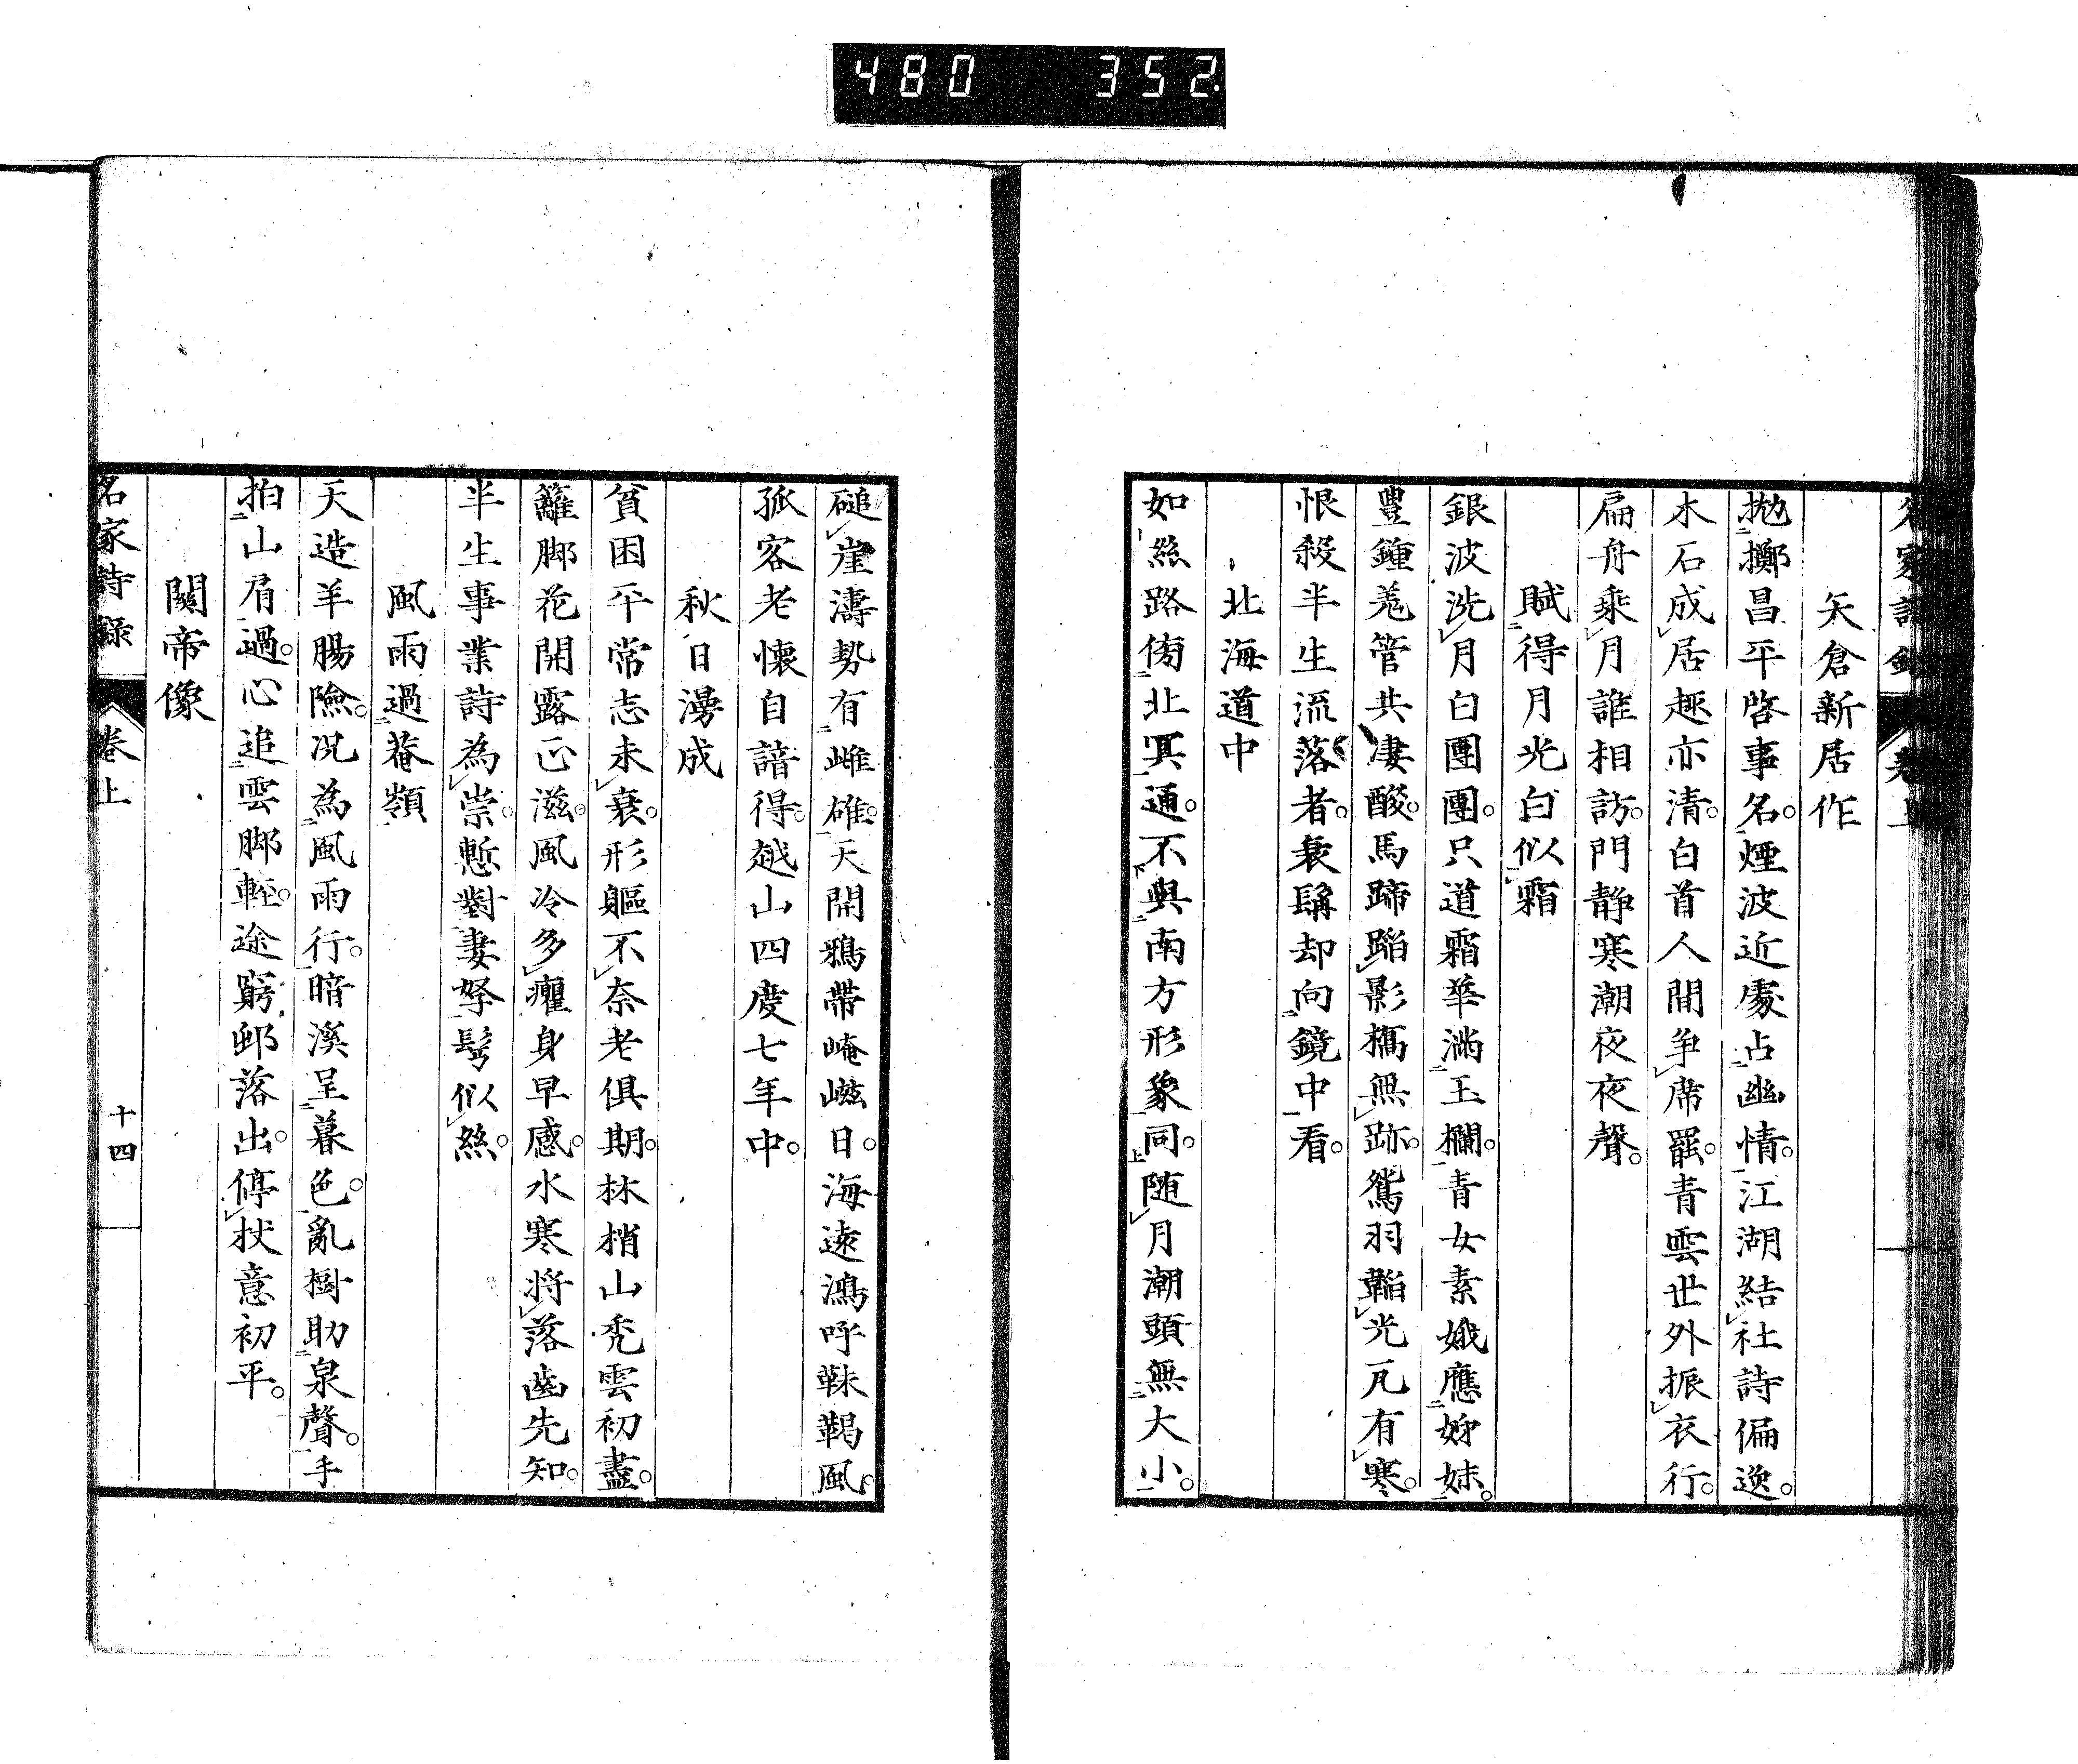 480 352
名家詩錄 卷上
矢倉新居作
拋擲昌平啓事名煙波近處占幽情江湖結社詩偏逸
木石成居趣亦清白首人間爭席罷青雲世外振衣行
扁舟乘月誰相訪門靜寒潮夜夜聲
賦得月光白似霜
銀波洗月白團團只道霜華滿玉欄青女素娥應姊妹
豐鍾羗管共凄酸馬蹄蹈影橋無跡鴛羽韜光瓦有寒
恨殺半生流落者衰鬍却向鏡中看
北海道中
如絲路傍北冥通不與南方形象同随月潮頭無大小
磓崖濤勢有雌雄天開鴉帶崦嵫日海遠鴻呼靺鞨風
孤客老懷自諳得越山四度七年中
秋日漫成
貧困平常志未衰形軀不奈老俱期林梢山禿雲初盡
籬脚花開露正滋風冷多癯身早感水寒將落齒先知
半生事業詩為崇慙對妻孥髩似絲
風雨過菴嶺
天造羊腸險况為風雨行暗溪呈暮色亂樹助泉聲手
拍山肩過心追雲脚輕途窮邨落出停杖意初平
關帝像
名家詩錄 卷上 十四